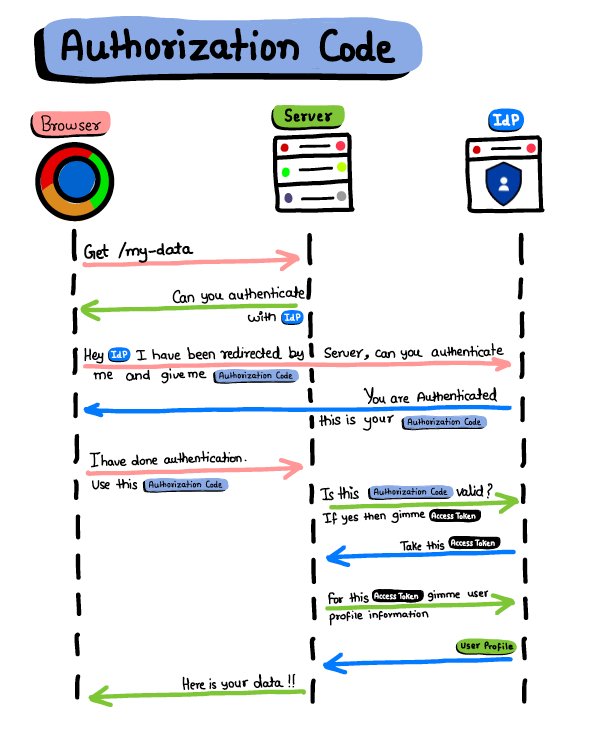 Authorization Code
Browser
Server
IdP
Get /my-data
Can you authenticate
with IdP
Hey IdP I have been redirected by Server, can you authenticate
me and give me Authorization Code
You are Authenticated
this is your Authorization Code
I have done authentication.
Use this Authorization Code
Is this Authorization Code valid?
If yes then gimme Access Token
Take this Access Token
For this Access Token gimme user
profile information
User Profile
Here is your data !!